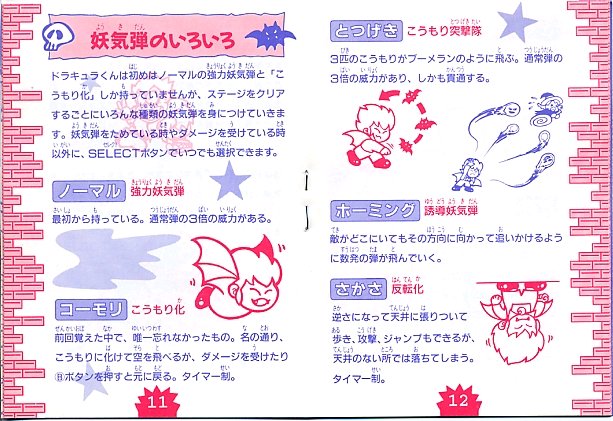 妖気弾のいろいろ
ドラキュラくんは初めはノーマルの強力妖気弾と「こ
うもり化」しか持っていませんが、ステージをクリア
するごとにいろんな種類の妖気弾を身につけていきま
す。妖気弾をためている時やダメージを受けている時
以外に、SELECTボタンでいつでも選択できます。
ノーマル 強力妖気弾
最初から持っている。通常弾の3倍の威力がある。
コーモリ こうもり化
前回覚えた中で、唯一忘れなかったもの。名の通り、
こうもりに化けて空を飛べるが、ダメージを受けたり
Ⓑボタンを押すと元に戻る。タイマー制。
11
とつげき こうもり突撃隊
3匹のこうもりがブーメランのように飛ぶ。通常弾の
3倍の威力があり、しかも貫通する。
ホーミング 誘導妖気弾
敵がどこにいてもその方向に向かって追いかけるよう
に数発の弾が飛んでいく。
さかさ 反転化
逆さになって天井に張りついて
歩き、攻撃、ジャンプもできるが、
天井のない所では落ちてしまう。
タイマー制。
12